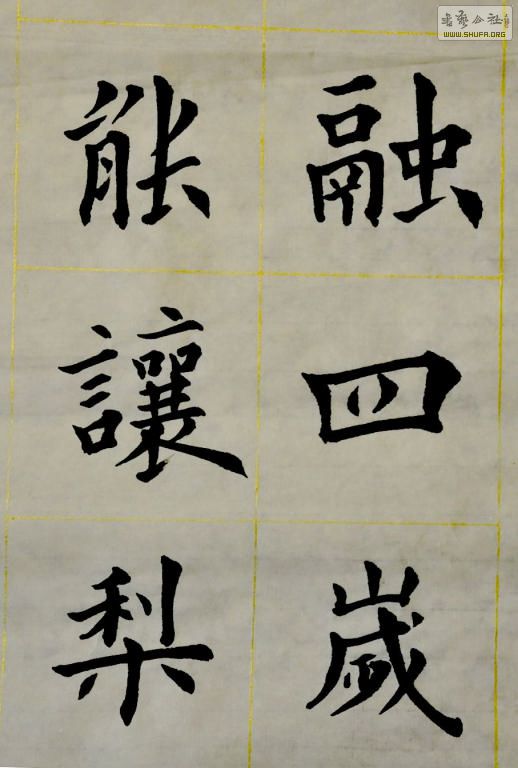 融四歲
能讓梨
書藝公社
WWW.SHUFA.ORG